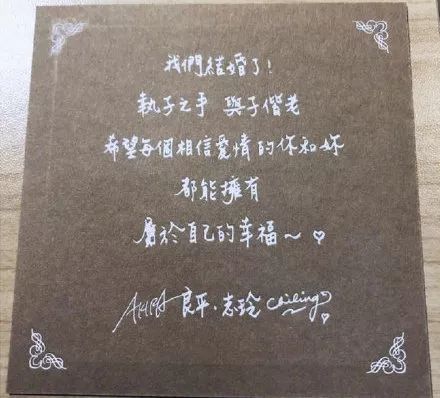 我們結婚了!
執子之手 與子偕老
希望每個相信愛情的你和妳
都能擁有
屬於自己的幸福～♡
AKIRA 良平.志玲 Chiling♡